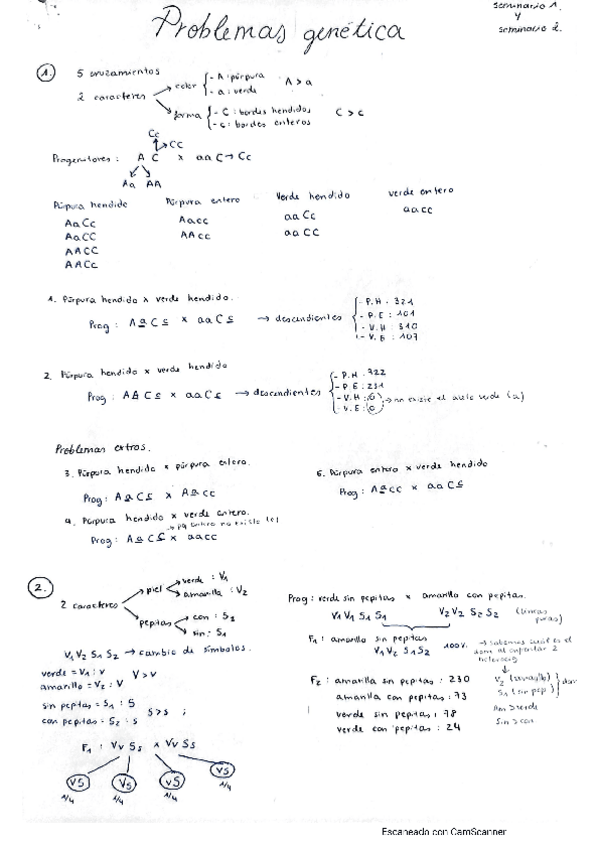 seminario 1.
y
seminario 2.
Problemas genética
1. 5 cruzamientos
2 caracteres
color
- A : púrpura
- a : verde
A > a
forma
- C : bordes hendidos
- c : bordes enteros
C > c
Cc
CC
Progenitores : A C x aa C → Cc
Aa AA
Púrpura hendido Púrpura entero Verde hendido verde entero
AaCc Aacc aaCc aacc
AaCC AAcc aaCC
AACC
AACc
1. Púrpura hendido x verde hendido.
Prog : AaCc x aaCc → descendientes
- P.H : 321
- P.E : 101
- V.H : 310
- V.E : 107
2. Púrpura hendido x verde hendido
Prog : AACc x aaCc → descendientes
- P.H : 722
- P.E : 231
- V.H : 0
- V.E : 0
→ no existe el alelo verde (a)
Problemas extras.
3. Púrpura hendido x púrpura entero.
Prog : AaCc x Aacc
4. Púrpura hendido x verde entero.
Prog : AaCc x aacc
5. Púrpura entero x verde hendido
Prog : Aacc x aaCc
2. 2 caracteres
piel
verde : V1
amarilla : V2
pepitas
con : S2
sin : S1
V1V2 S1S2 → cambio de símbolos.
verde = V1 : v
amarillo = V2 : V
V > v
sin pepitas = S1 : S
con pepitas = S2 : s
S > s ;
F1 : Vv Ss x Vv Ss
VS Vs vS vs
1/4 1/4 1/4 1/4
Prog : verde sin pepitas x amarillo con pepitas.
V1V1 S1S1 V2V2 S2S2 (líneas puras)
F1 : amarillo sin pepitas
V1V2 S1S2 100%
V2 (amarillo)
S1 (sin pep)
dom
Am > verde
Sin > con
F2 : amarilla sin pepitas : 230
amarilla con pepitas : 73
verde sin pepitas : 78
verde con pepitas : 24
Escaneado con CamScanner